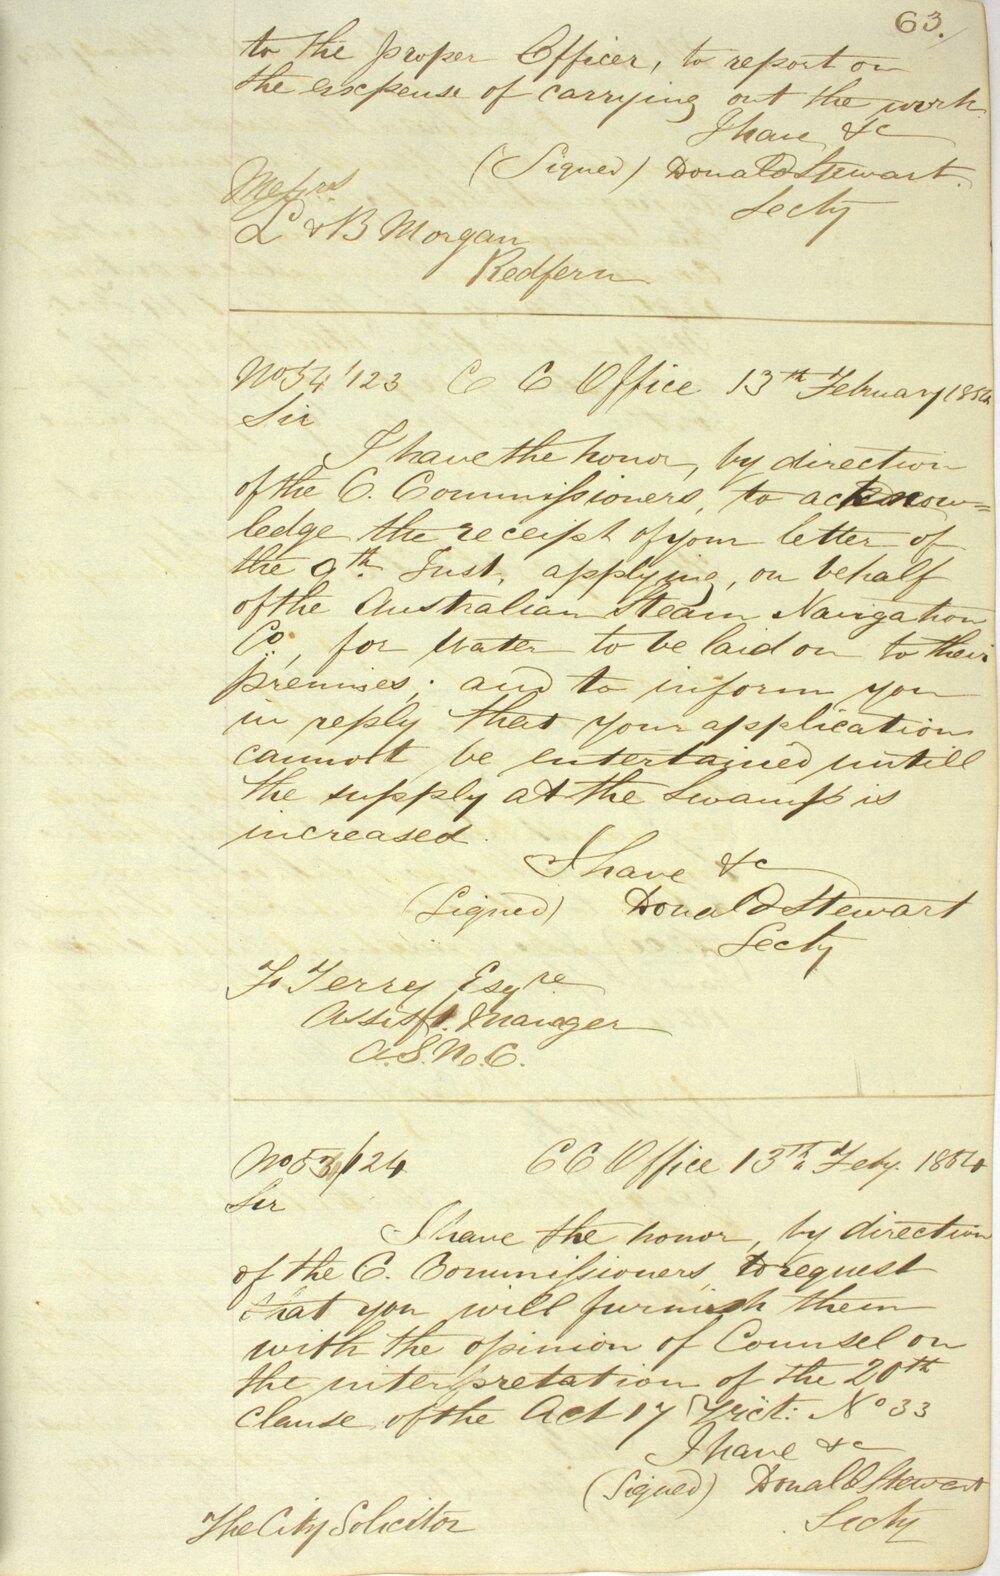 63.
to the proper Officer, to report on
the expense of carrying out the work.
I have &c
(Signed) Donald Stewart.
Secty
Messrs
L & B Morgan
Redfern
No 54/123 C C Office 13th February 1854
Sir
I have the honor, by direction
of the C. Commissioners, to acknow=
ledge the receipt of your letter of
the 9th Inst, applying, on behalf
of the Australian Steam Navigation
Co., for Water to be laid on to their
premises; and to inform you
in reply that your application
cannot be entertained untill
the supply at the Swamp is
increased.
I have &c
(Signed) Donald Stewart
Secty
Terry Esqre
Assist. Manager
A.S.N.C.
No 53/124 CC Office 13th Feby. 1854
Sir
I have the honor, by direction
of the C. Commissioners, to request
that you will furnish them
with the opinion of Counsel on
the interpretation of the 20th
clause of the Act 17 Vict: No 33
I have &c
(Signed) Donald Stewart
Secty
The City Solicitor